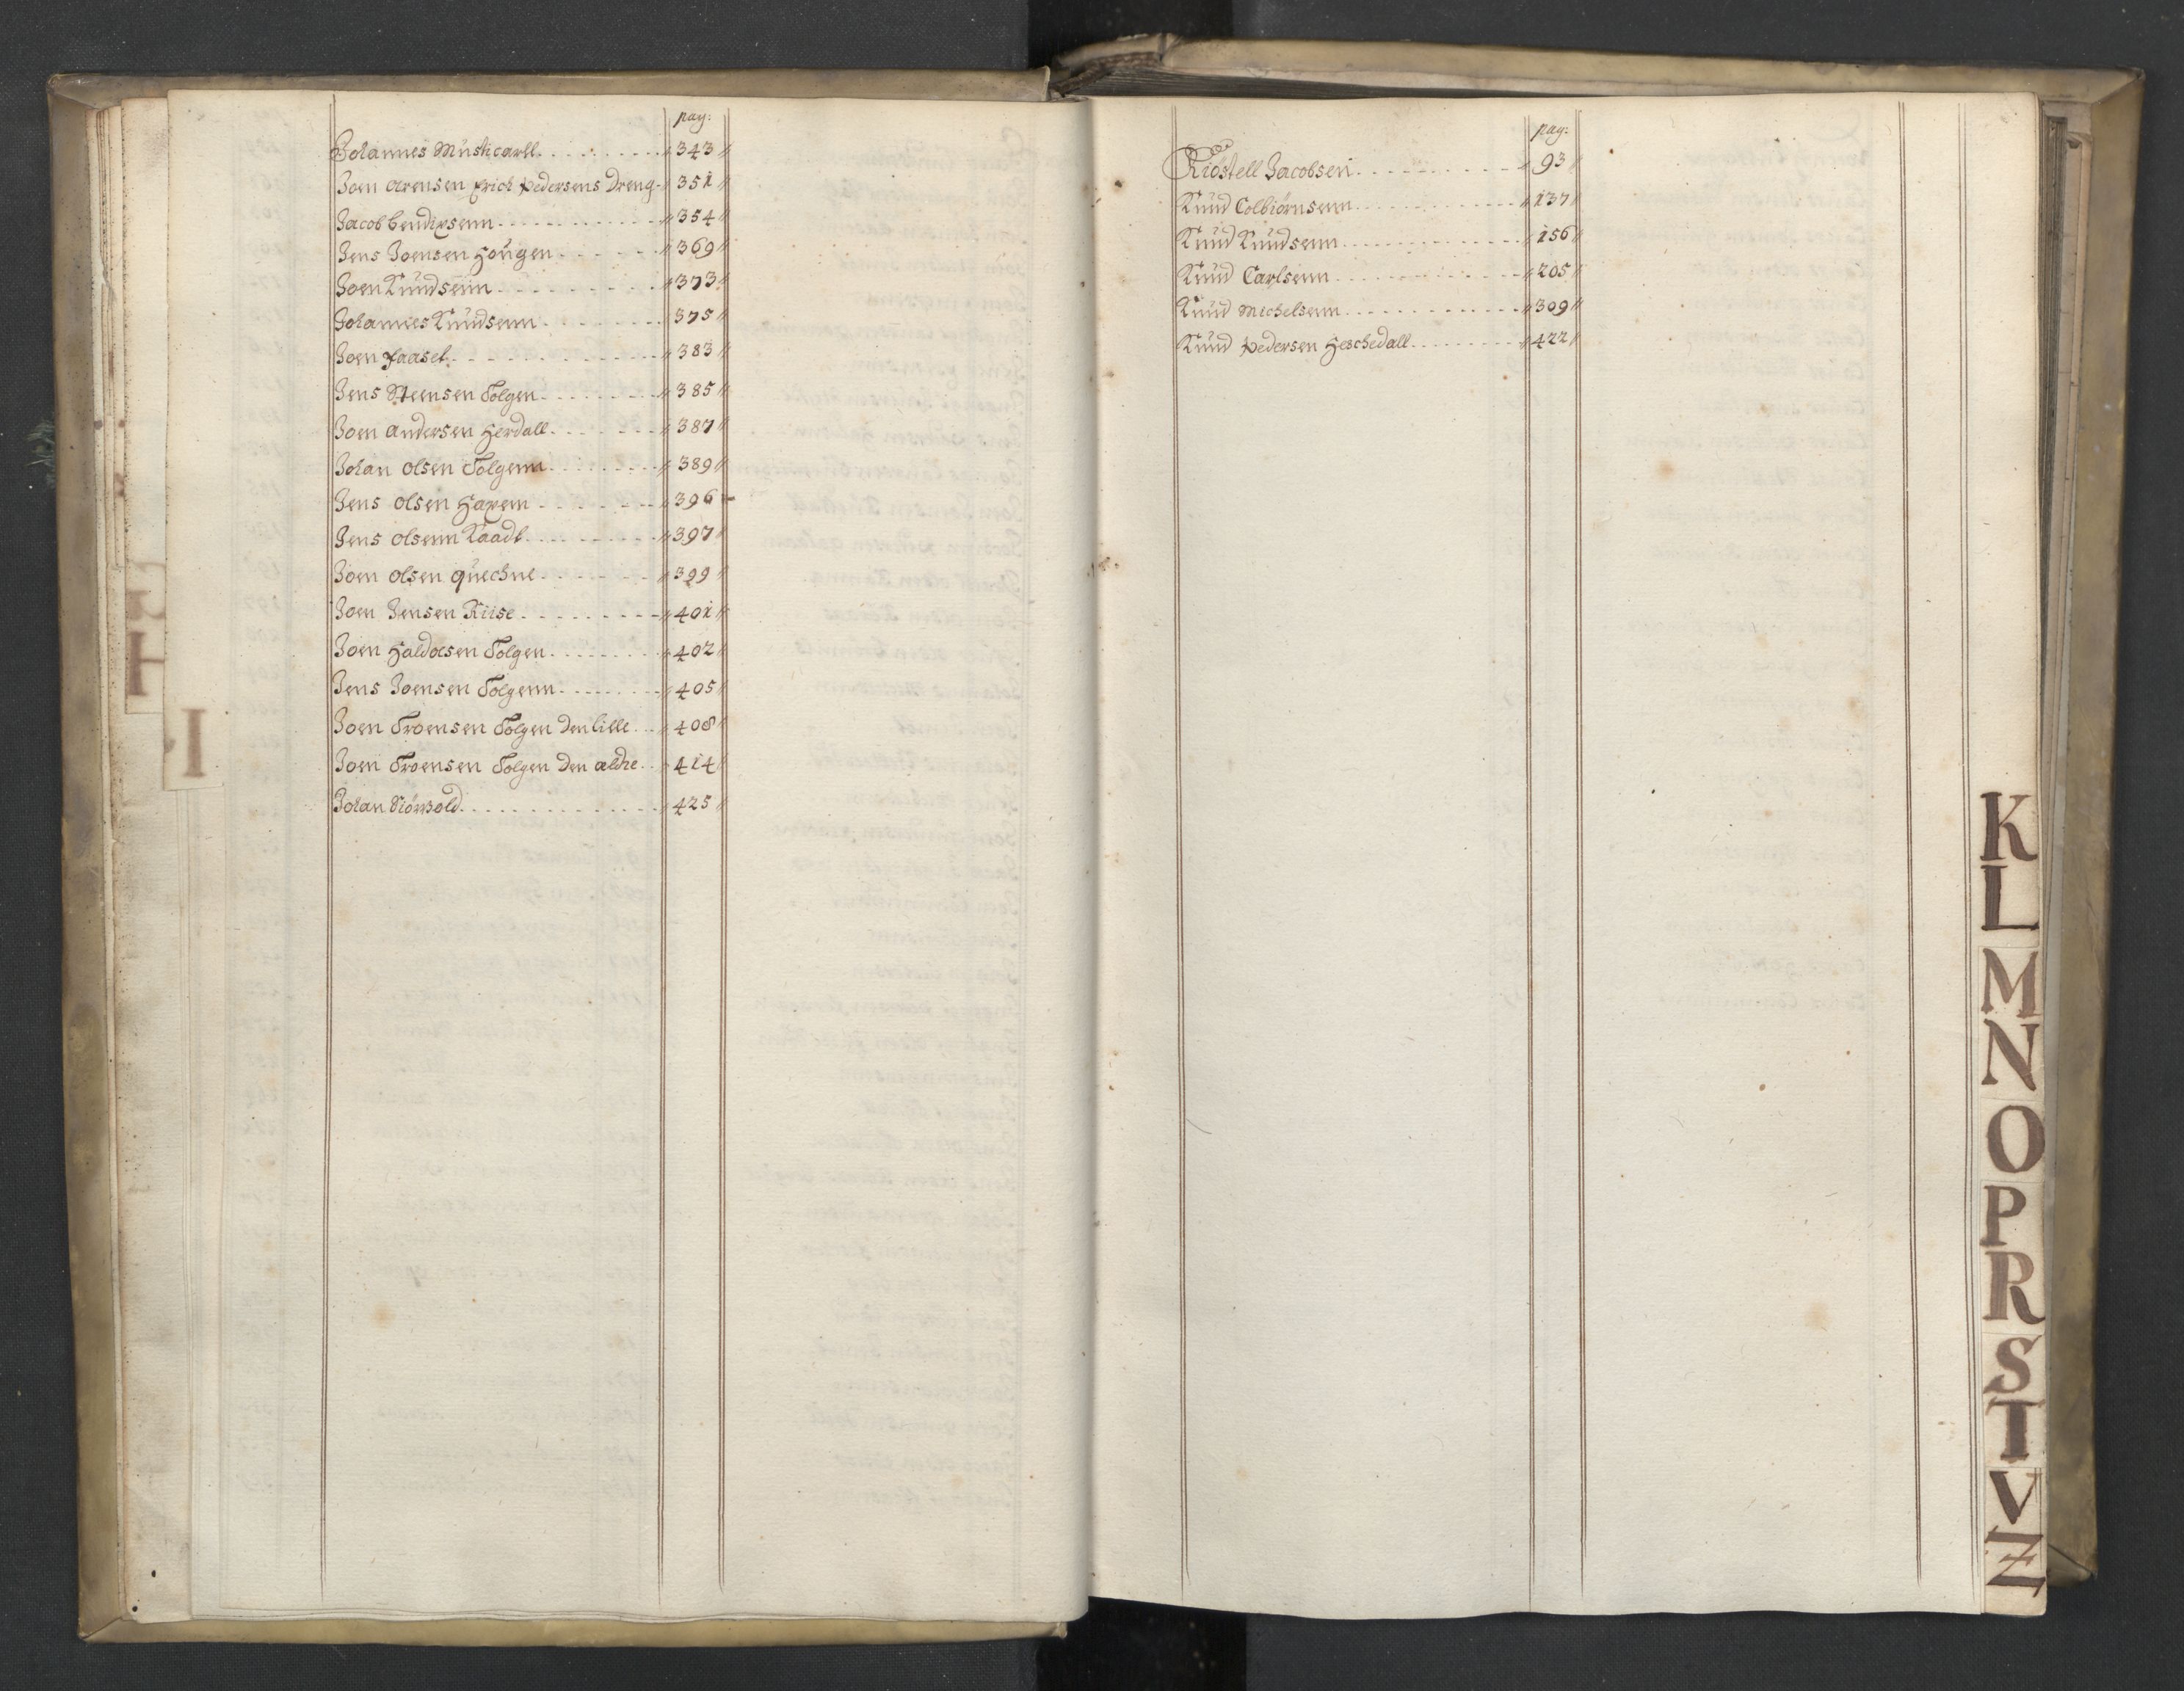 pag:
Johannes Musticarll. 343
Joen Arensen Erich Pedersens Dreng 351
Jacob Bendixsenn 354
Jens Joensen Hougen 369
Joen Knudsenn 373
Johannes Knudsenn 375
Joen Faaset 383
Jens Steensen Tolgen 385
Joen Andersen Herdall 387
Johan Olsen Tolgenn 389
Jens Olsen Harem 396
Jens Olsenn Kaadt 397
Joen Olsen Quechne 399
Joen Jensen Riise 401
Joen Haldoesen Tolgen 402
Jens Joensen Tolgenn 405
Joen Troensen Tolgen den lille 408
Joen Troensen Tolgen den ældre 414
Johan 425
I
H
pag:
Kiöstell Jacobsen 93
Knud Colbiörnsenn 137
Knud Knudsenn 156
Knud Carlsenn 205
Knud Michelsenn 309
Knud Pedersen Heschedall 422
K
L
M
N
O
P
R
S
T
V
Z